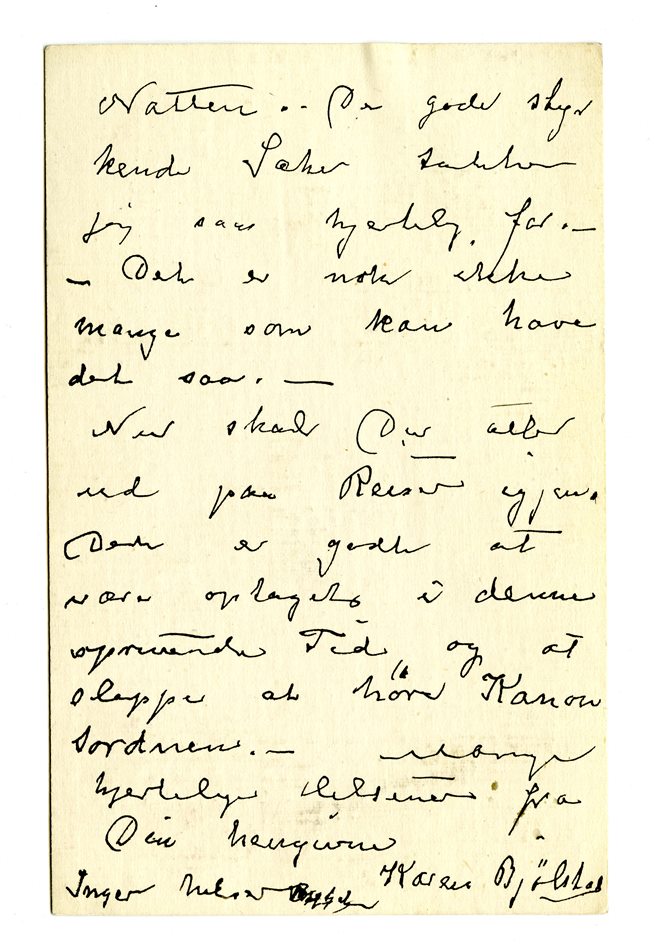 Natten. – De gode styr
kende Saker takker
jeg saa hjertelig for. –
– Det er nok ikke
mange som kan have
det saa. –
Nu skal Du atter
ud paa Reiser igjen.
Det er godt at
være optaget i denne
oprivende Tid, og at
slippe at høre Kanon
tordnen. – Mange
hjertelige Hilsener fra
Din hengivne
Karen Bjölstad
Inger hilser